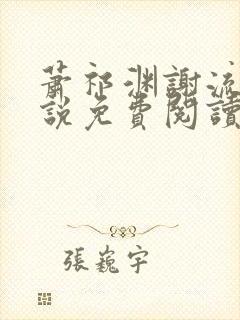 蕭祁渊謝流
說免費閱讀
張巍宇